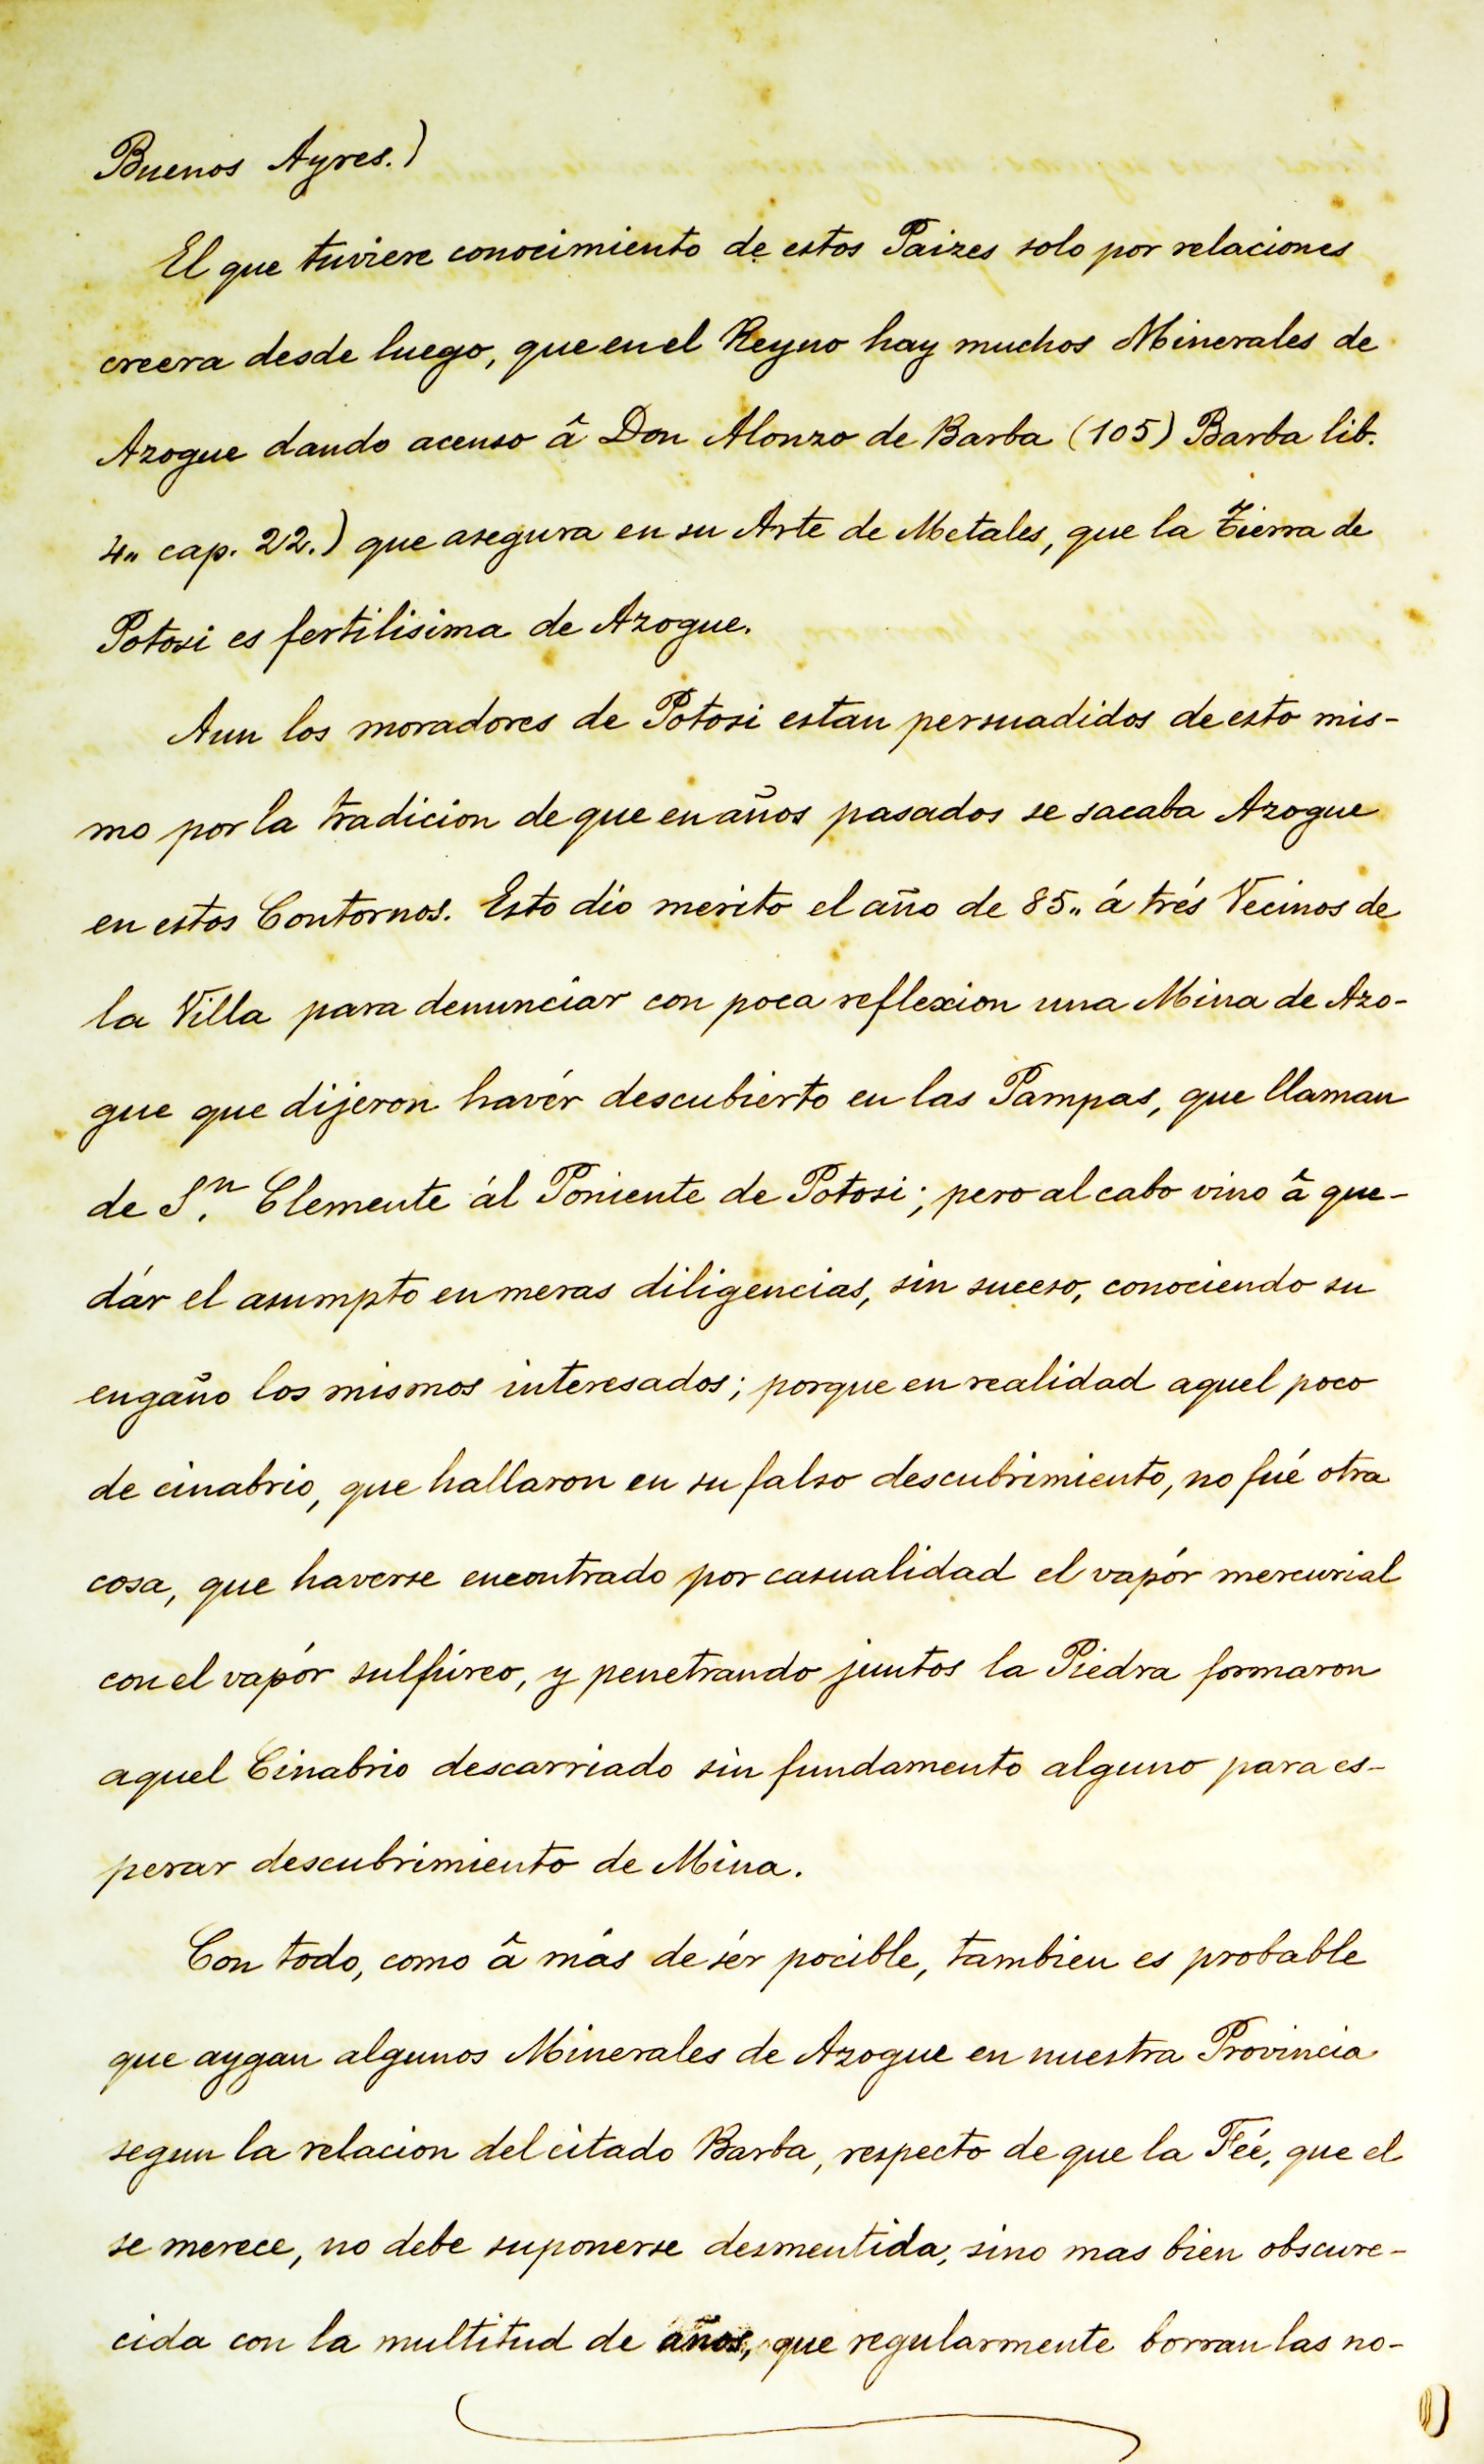 Buenos Ayres.)
El que tuviere conocimiento de estos Paizes solo por relaciones
creera desde luego, que en el Reyno hay muchos Minerales de
Azogue dando acenso â Don Alonzo de Barba (105) Barba lib.
4,, cap. 22.) que asegura en su Arte de Metales, que la tierra de
Potosi es fertilisima de Azogue.
Aun los moradores de Potosi estan persuadidos de esto mis-
mo por la tradicion de que en años pasados se sacaba Azogue
en estos Contornos. Esto dio merito el año de 85,, á trés Vecinos de
la Villa para denunciar con poca reflexion una Mina de Azo-
gue que dijeron havér descubierto en las Pampas, que llaman
de S.n Clemente ál Poniente de Potosi; pero al cabo vino â que-
dár el asumpto en meras diligencias, sin suceso, conociendo su
engaño los mismos interesados; porque en realidad aquel poco
de cinabrio, que hallaron en su falso descubrimiento, no fué otra
cosa, que haverse encontrado por casualidad el vapór mercurial
con el vapór sulfúreo, y penetrando juntos la Piedra formaron
aquel Cinabrio descarriado sin fundamento alguno para es-
perar descubrimiento de Mina.
Con todo, como â más de sér pocible, tambien es probable
que aygan algunos Minerales de Azogue en nuestra Provincia
segun la relacion del citado Barba, respecto de que la Féé, que el
se merece, no debe suponerse desmentida, sino mas bien obscure-
cida con la multitud de años, que regularmente borran las no-